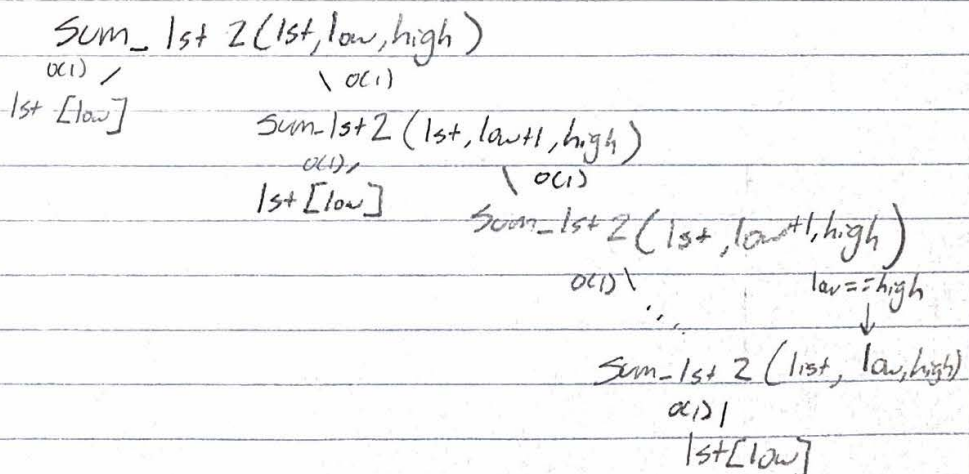 sum_lst 2(lst,low,high)
O(1) / \ O(1)
lst [low]
sum_lst2 (lst,low+1,high)
O(1) / \ O(1)
lst [low]
sum_lst 2 (lst,low+1,high)
O(1) \ low==high
sum_lst 2 (list, low,high)
O(1) |
lst[low]